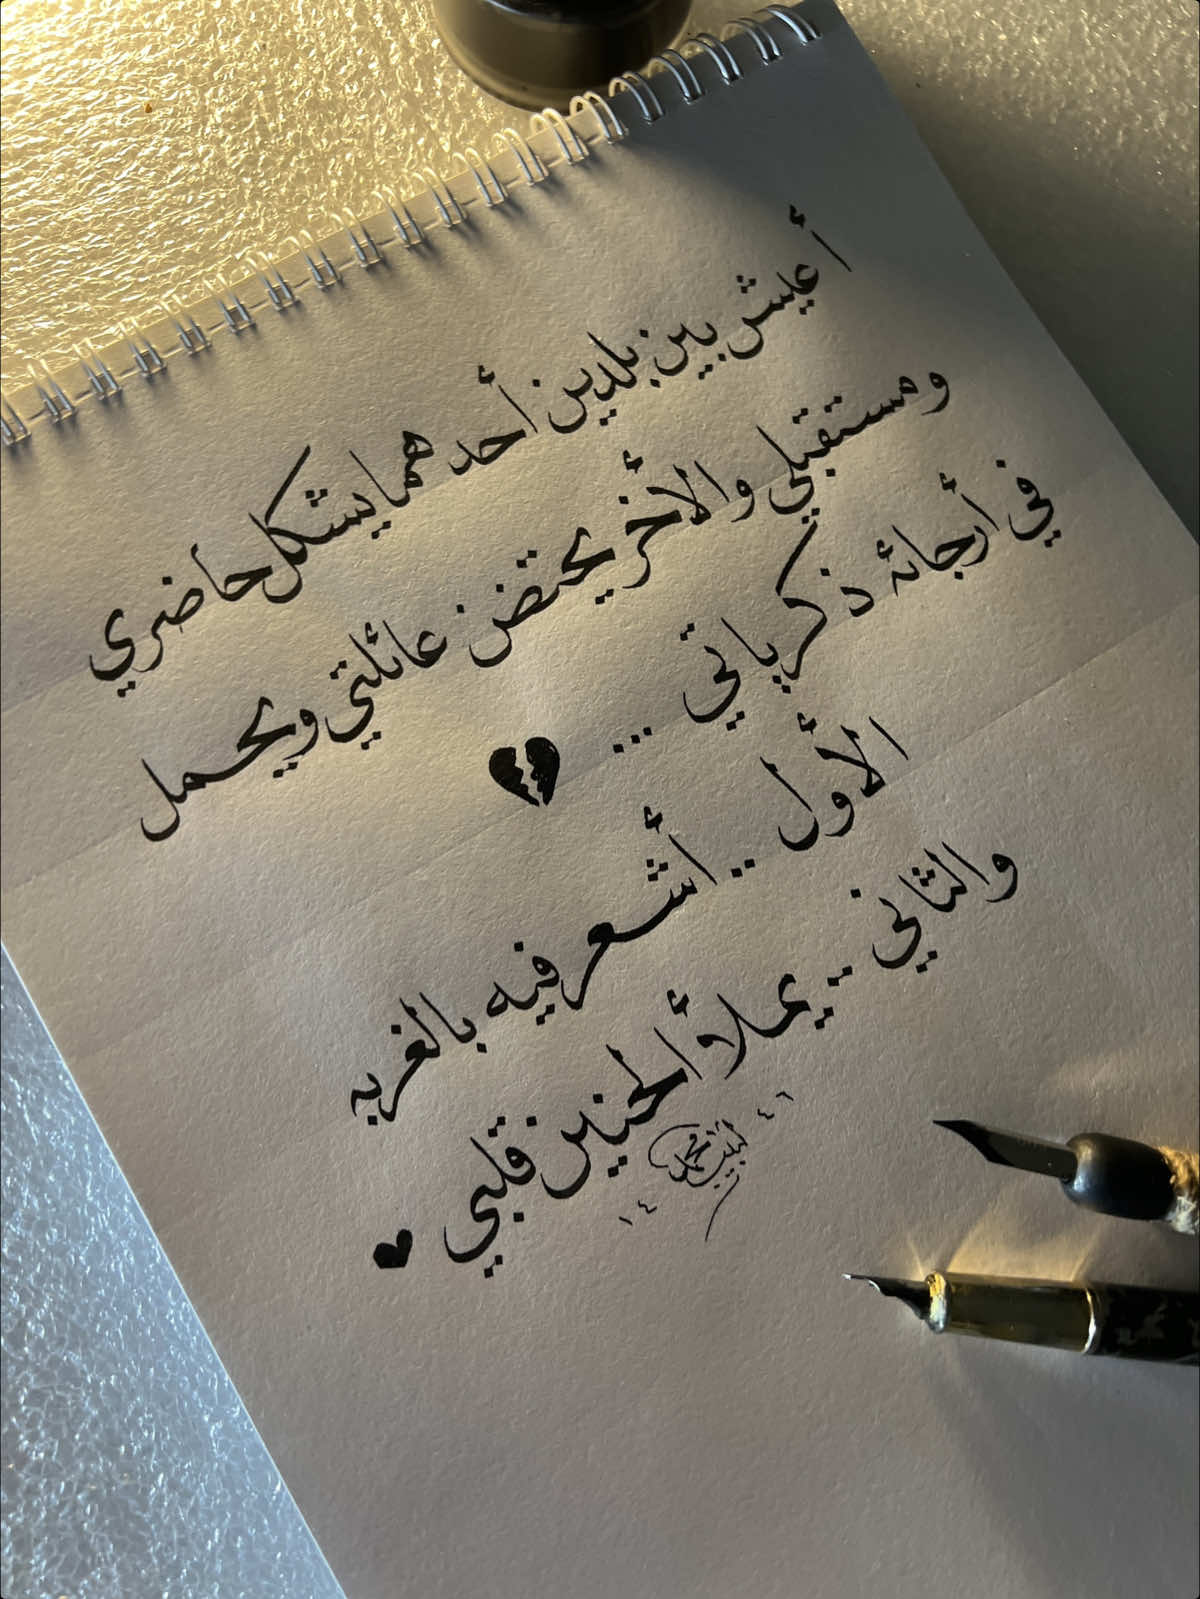 أعيش بين بلدين أحدهما يشكل حاضري
ومستقبلي والأخر يحتضن عائلتي ويحمل
في أرجائه ذكرياتي ...
الأول .. أشعر فيه بالغربه
والثاني .. يملأ الحنين قلبي
١٤ لبيب محمد ٤٦